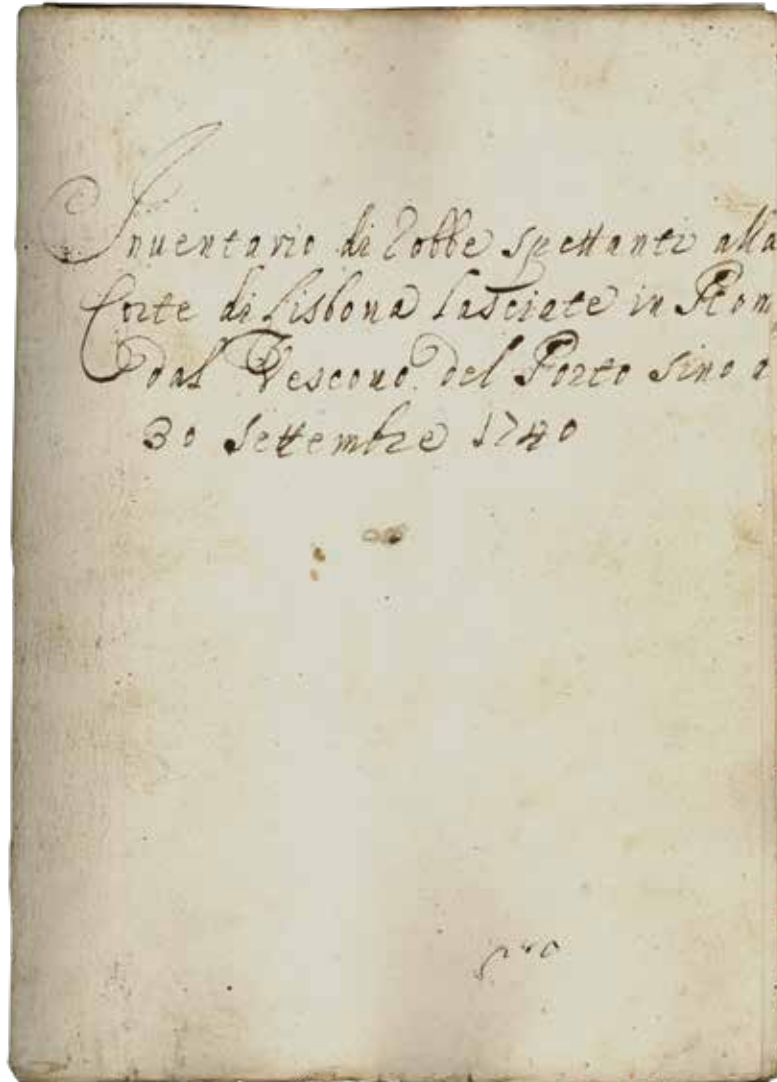 Inventario di Robbe spettanti alla
Corte di Lisbona lasciate in Rom
dal Vescovo del Porto sino a
30 Settembre 1740